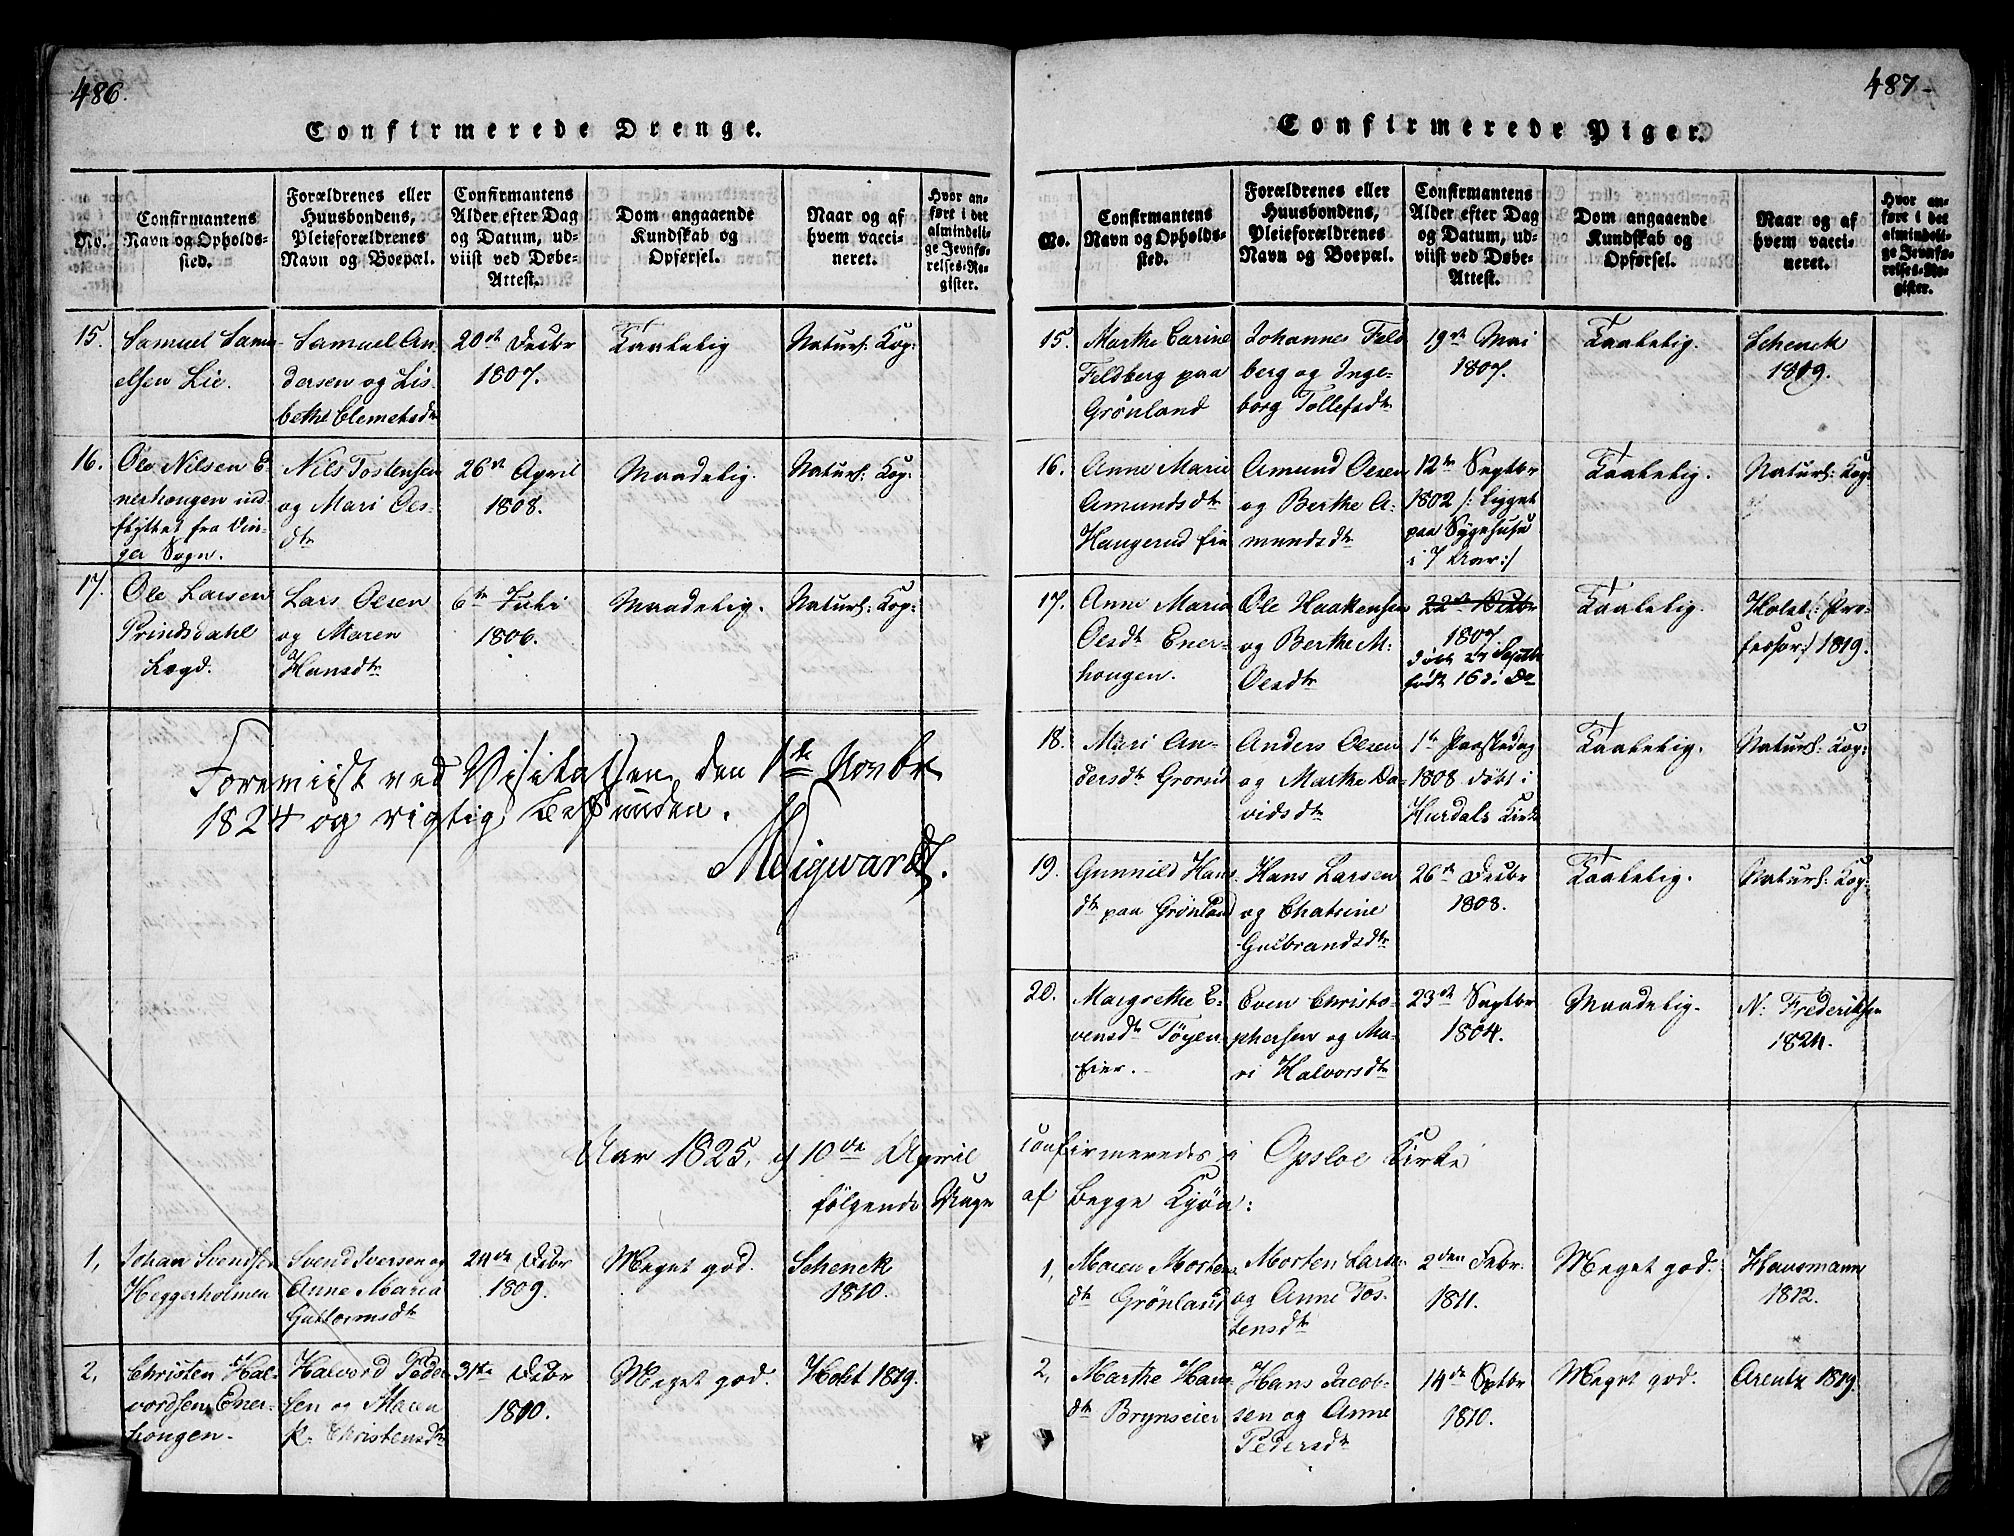 486.
Confirmerede Drenge.
No.
Confirmantens
Navn og Opholds-
sted.
Forældrenes eller
Huusbondens,
Pleieforældrenes
Navn og Boepæl.
Confirmantens
Alder efter Dag
og Datum, ud-
viist ved Døbe-
Attest.
Dom angaaende
Kundskab og
Opførsel.
Naar og af
hvem vacci-
neret.
Hvor an-
ført i det
almindeli-
ge Jevnfø-
relses-Re-
gister.
15.
Samuel Samu-
elsen Lie.
Samuel An
dersen og Lis-
bethe Clemetsdtr
20de Decbr
1807.
Taalelig
Naturl: Kop:
16.
Ole Nilsen E-
nerhougen ind
flyttet fra Vin-
ger Sogn.
Nils Tostensen
og Mari Oles-
dtr
26de April
1808.
Maadelig.
Naturl: Kop:
17.
Ole Larsen
Prindsdahl
Lægd.
Lars Olsen
og Maren
Hansdtr
6te Juli
1806.
Maadelig.
Naturl: Kop:
Foreviist ved Visitatsen den 1te Novbr
1824 og rigtig befunden.
Aar 1825, d 10de April
følgende Unge
1,
Johan Svendsen
Heggerholmen
Svend Iversen og
Anne Maria
Guttormsdtr
24de Decbr
1809.
Meget god.
Schenck
1810.
2,
Christen Hal-
vordsen Ener-
hougen.
Halvord Peder
sen og Maren
K. Christensdtr
31te Decbr
1810.
Meget god.
Holst 1819.
487.
Confirmerede Piger.
No.
Confirmantens
Navn og Opholds-
sted.
Forældrenes eller
Huusbondens,
Pleieforældrenes
Navn og Boepæl.
Confirmantens
Alder efter Dag
og Datum, ud-
viist ved Døbe-
Attest.
Dom angaaende
Kundskab og
Opførsel.
Naar og af
hvem vacci-
neret.
Hvor an-
ført i det
almindeli-
ge Jevnfø-
relses-Re-
gister.
15.
Marthe Carine
Feldberg paa
Grönland
Johannes Feld
berg og Inge-
borg Tollefsdtr
19de Mai
1807.
Taalelig.
Schenck
1819.
16.
Anne Marie
Amundsdtr
Haugerud eie
Amund Olsen
og Berthe A-
mundsdtr
12te Septbr
1802 /: ligget
paa Sygehuset
i 7 Aar :/
Taalelig.
Naturl: Kop:
17.
Anne Maria
Olsdtr Ener-
hougen.
Ole Haakensen
og Berthe M.
Olsdtr
22de Octbr
1807.
døbt 27 Septbr
født 16 d: Do
Taalelig.
Holst /: Pro-
fessor :/ 1819.
18.
Mari An-
dersdtr Grorud
Anders Olsen
og Marthe Da-
vidsdtr
1te Paaskedag
1808 døbt i
Hurdals Kirke
Taalelig.
Naturl: Kop:
19.
Gunnild Hans-
dtr paa Grönland
Hans Larsen
og Chatrine
Gulbrandsdtr
26de Decbr
1808.
Taalelig.
Naturl: Kop:
20.
Margrethe E-
vensdtr Töyen-
eier.
Even Christo-
phersen og Ma-
ri Halvorsdtr
23de Septbr
1804.
Maadelig.
N: Frederiksen
1824.
confirmeredes i Opsloe Kirke
af begge Kjön:
1,
Maren Morten
dtr Grönland
Morten Larsen
og Anne Tos-
tensdtr
2den Febr.
1811.
Meget god.
Hausmann
1812.
2,
Marthe Hans-
dtr Brynseier
Hans Jacob-
sen og Anne
Pedersdtr
14de Septbr
1810.
Meget god.
Arentz 1819.